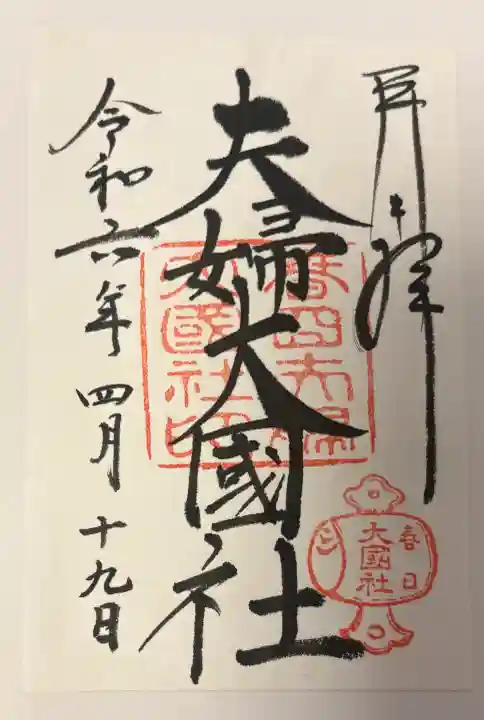 奉拝
夫婦大國社
春日夫婦
大國社印
春日
大國社
令和六年四月十九日